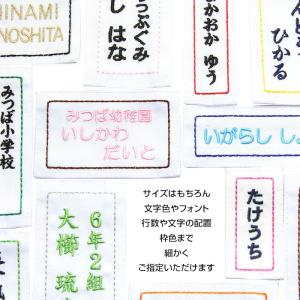 HINAMI
NOSHITA
うぶぐみ
し はな
なかおか ゆう
ひかる
みつば小学校
みつば幼稚園
いしかわ
だいと
いがらし し
たけうち
6年2組
大櫛 琉
サイズはもちろん
文字色やフォント
行数や文字の配置
枠色まで
細かく
ご指定いただけます